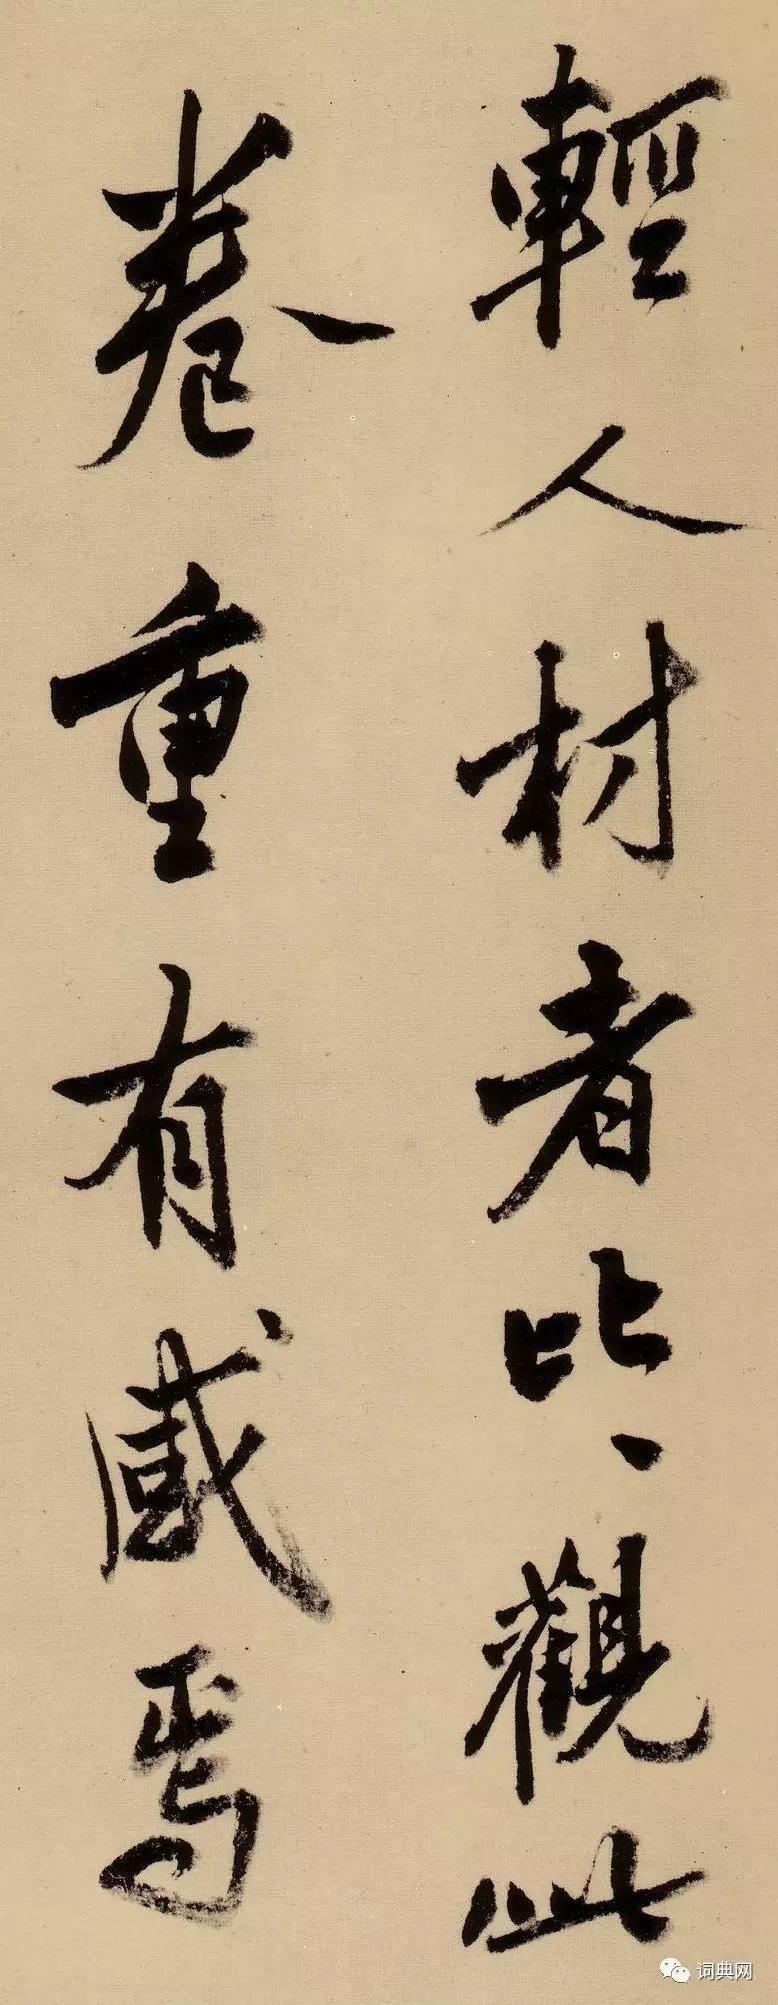 輕人材者比〻觀此
卷重有感焉
词典网